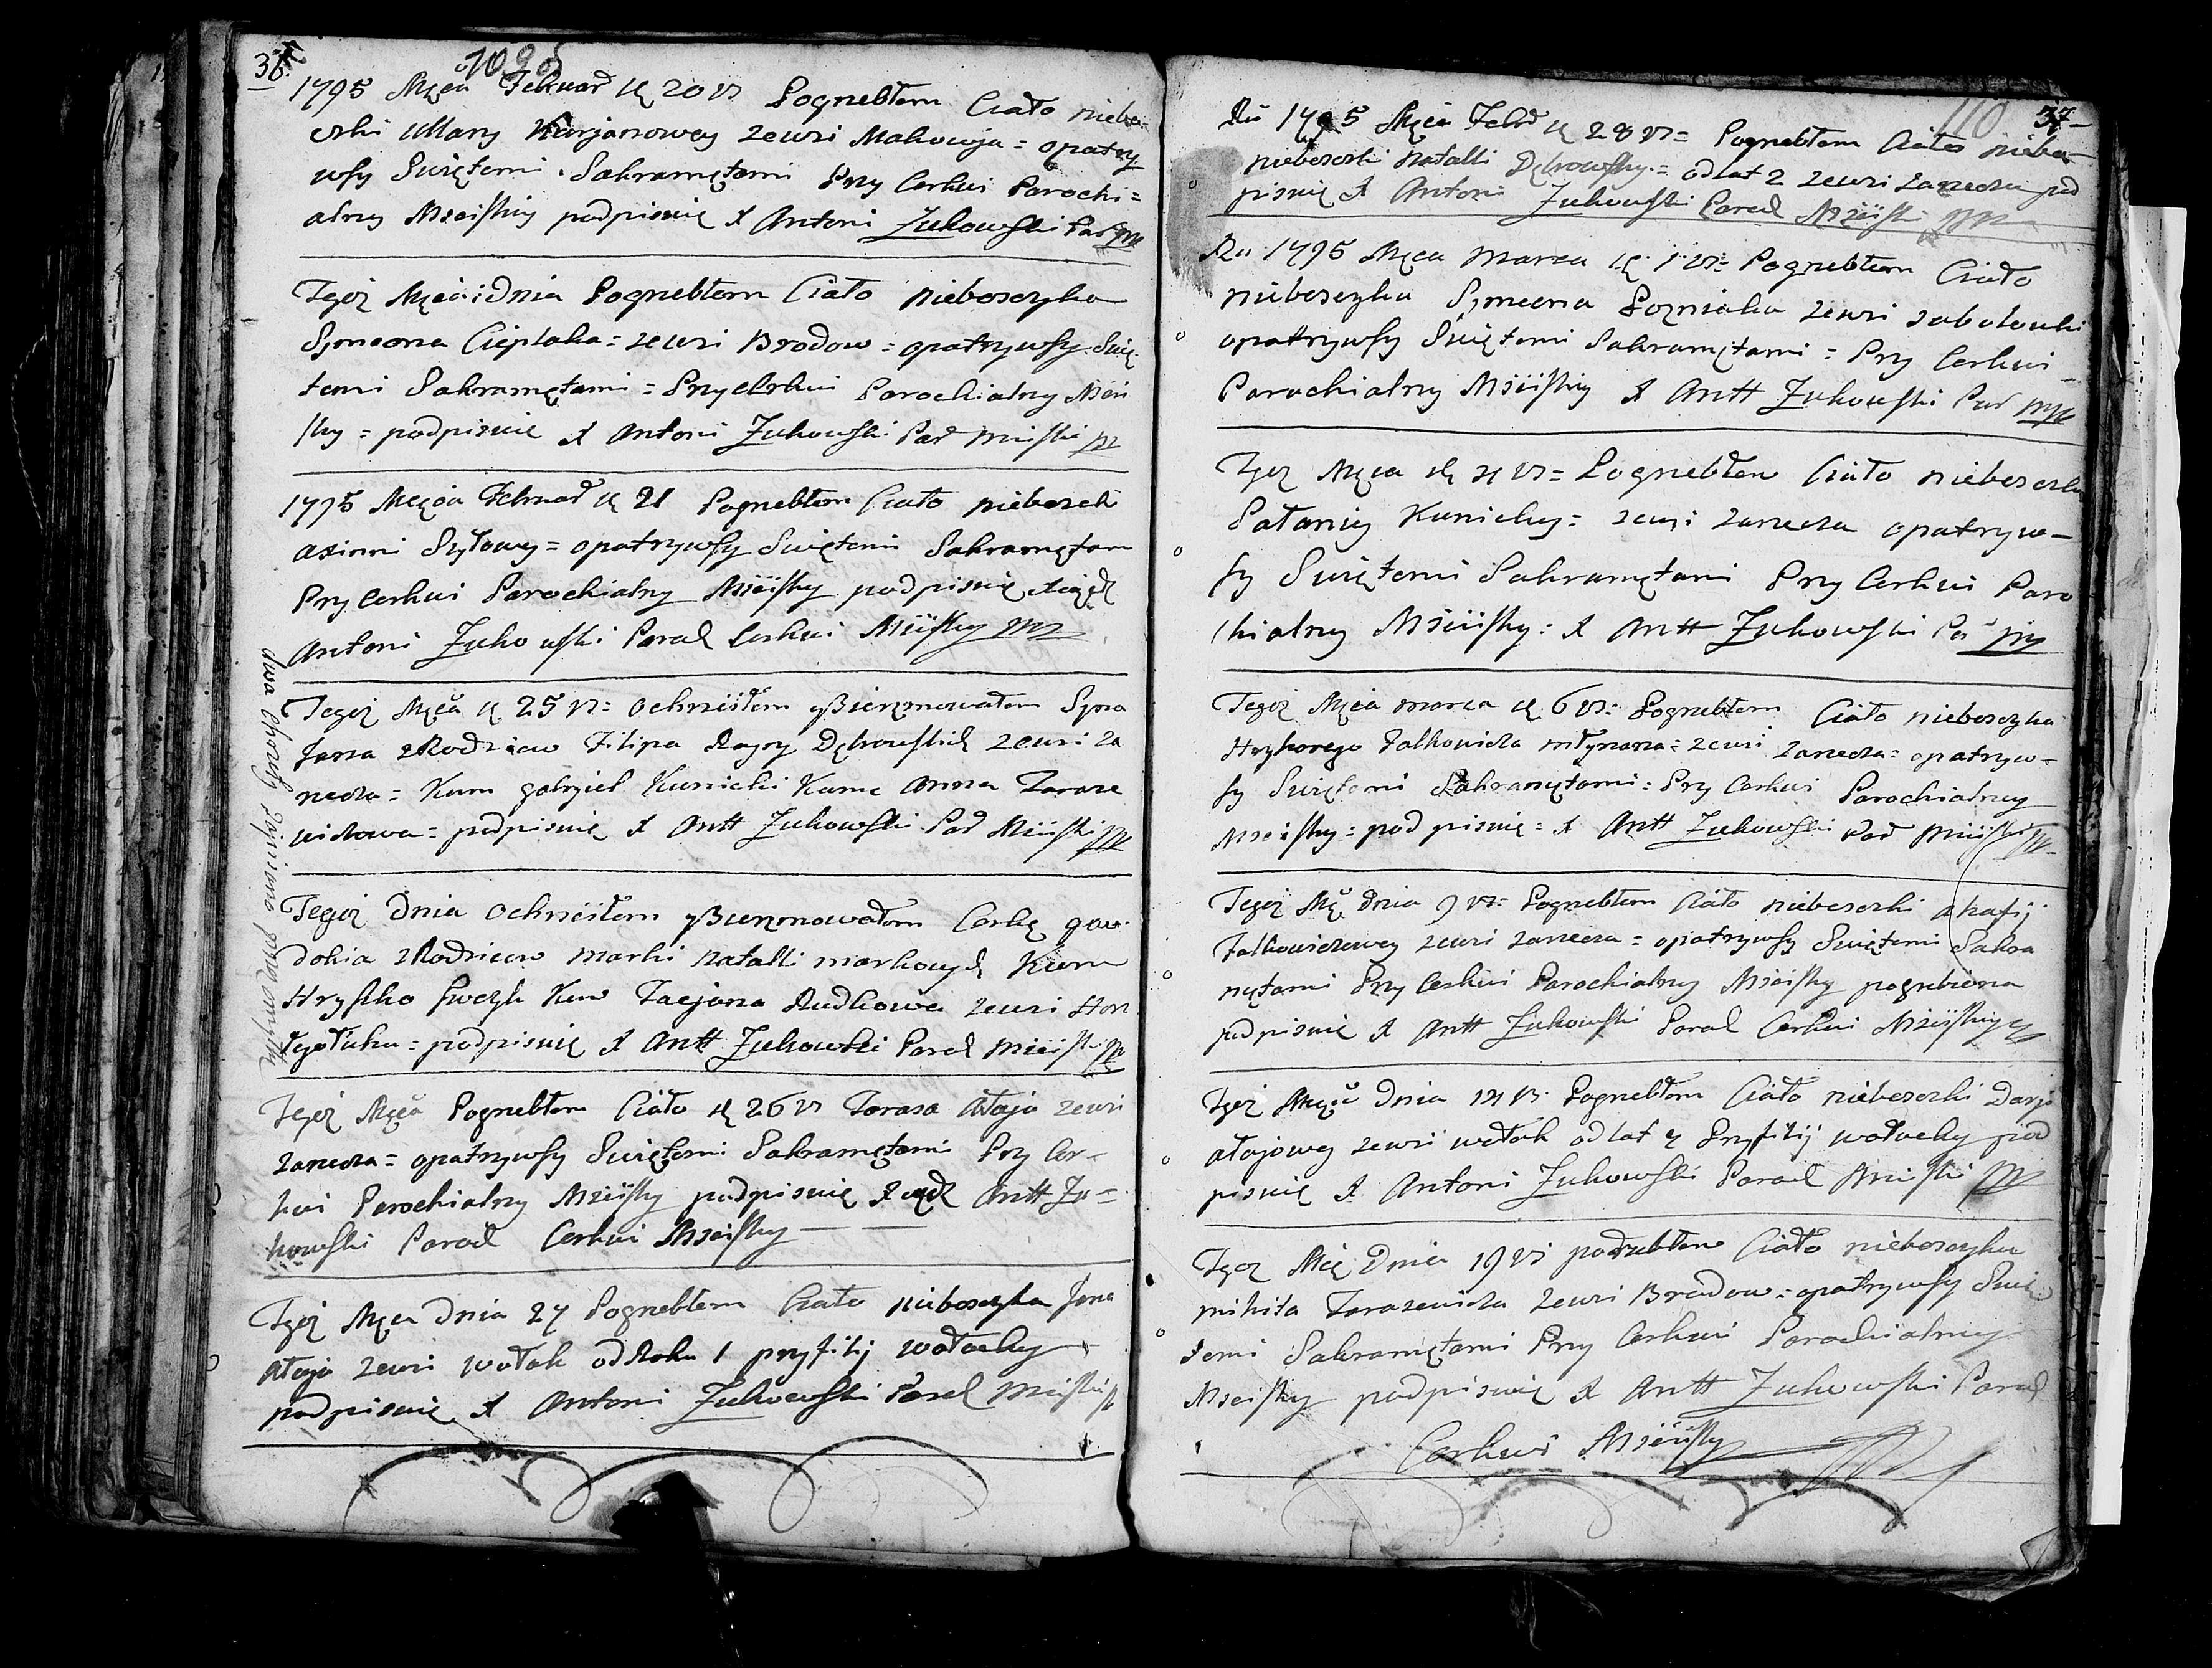 36.
1795 Męca Februar d 20 vs Pogrzebłem Ciało niebo
szki Ullany Kurjanowey zewsi Makowja = opatrzy
wszy Swiętemi Sakramętami Przy Cerkwi Parochi=
alney Msciskiy podpisuię X Antoni Żukowski Par
Tegoż Męca i Dnia Pogrzebłem Ciało nieboszczyka
Symeona Cieplaka = zewsi Brodow = opatrzywszy Swię
temi Sakramętami = Przy Cerkwi Parochialny Msci
skiy = podpisuię X Antoni Żukowski Par Msciski
1795 Męca Februar d 21 Pogrzebłem Ciało nieboszczki
opatrzywszy Swiętemi Sakramętam
Przy Cerkwi Parochialny Msciskiy podpisuię Xiądz
Antoni Żukowski Paroch Cerkwi Msciskiy
Tegoż Męca d 25 vs = Ochrzciłem yBierzmowałem Syna
zRodzicow Filipa Dąbrowskich zewsi Za
necza = Kum gabryjel Kunicki Kuma Anna Tarase
wiczowa = podpisuię X Antt Żukowski Par Msciski
Tegoż Dnia Ochrzciłem yBierzmowałem Corkę gow
dokia zRodzicow marki natalli markowych Kum
Hryszko Szwczyk Kum Tacjana Rudkowa zewsi
podpisuię X Antt Żukowski Paroch Msciski
Tegoż Męca Pogrzebłem Ciało d 26 vs Tarasa Ataja zewsi
Zanecza = opatrzywszy Swiętemi Sakramętami Przy Cer=
kwi Parochialny Msciskiy podpisuię Xiądz Antt Żu=
kowski Paroch Cerkwi Msciskiy
Tegoż Męca Dnia 27 Pogrzebłem Ciało nieboszczyka Jana
Ataja zewsi wołok od Roku 1 przyfilij wołockiy
podpisuię X Antoni Żukowski Paroch Msciski
dwa Chrzty Zapisano
110 37
Ru 1795 Męca Febr d 28 vs = Pogrzebłem Ciało niebo
nieboszczki natalli Dąbrowskiy = od lat 2 zewsi Zanecza pod
pisuię X Antoni Żukowski Paroch Msciski
Ru 1795 Męca Marca d 1 vs = Pogrzebłem Ciało
nieboszczyka Symeona Pozniaka zewsi sobolowki
opatrzywszy Swiętemi Sakramętami = Przy Cerkwi
Parochialny Msciskiy X Antt Żukowski Par
Tegoż Męca d 4 vs = Pogrzebłem Ciało nieboszczki
Pałaniy Kunickiy = zewsi Zanecza opatrzyw=
szy Swiętemi Sakramętami Przy Cerkwi Paro
chialny Msciskiy = X Antt Żukowski Par
Tegoż Męca marca d 6 vs = Pogrzebłem Ciało nieboszczyka
Hryhorego Falkowicza młynarza = zewsi Zanecza = opatrzyw=
szy Swiętemi Sakramętami = Przy Cerkwi Parochialney
Msciskiy = podpisuię = X Antt Żukowski Par Msciski
Tegoż Mę Dnia 9 vs = Pogrzebłem Ciało nieboszczki Ahafij
Falkowiczowey zewsi Zanecza = opatrzywszy Swiętemi Sakra
mętami Przy Cerkwi Parochialny Msciskiy pogrzebiona
podpisuię X Antt Żukowski Paroch Cerkwi Msciskiy
Tegoż Męca Dnia 14 vs Pogrzebłem Ciało nieboszczki Darji
atajowey zewsi wołok od lat 4 Przyfilij wołockiy pod
pisuię X Antoni Żukowski Paroch Msciski
Tegoż Mcę Dnia 19 vs pogrzebłem Ciało nieboszczyka
mikita Tarasewicza zewsi Brodow = opatrzywszy Swię
temi Sakramętami Przy Cerkwi Parochialney
Msciskiy podpisuię X Antt Żukowski Paroch
Cerkwi Msciskiy